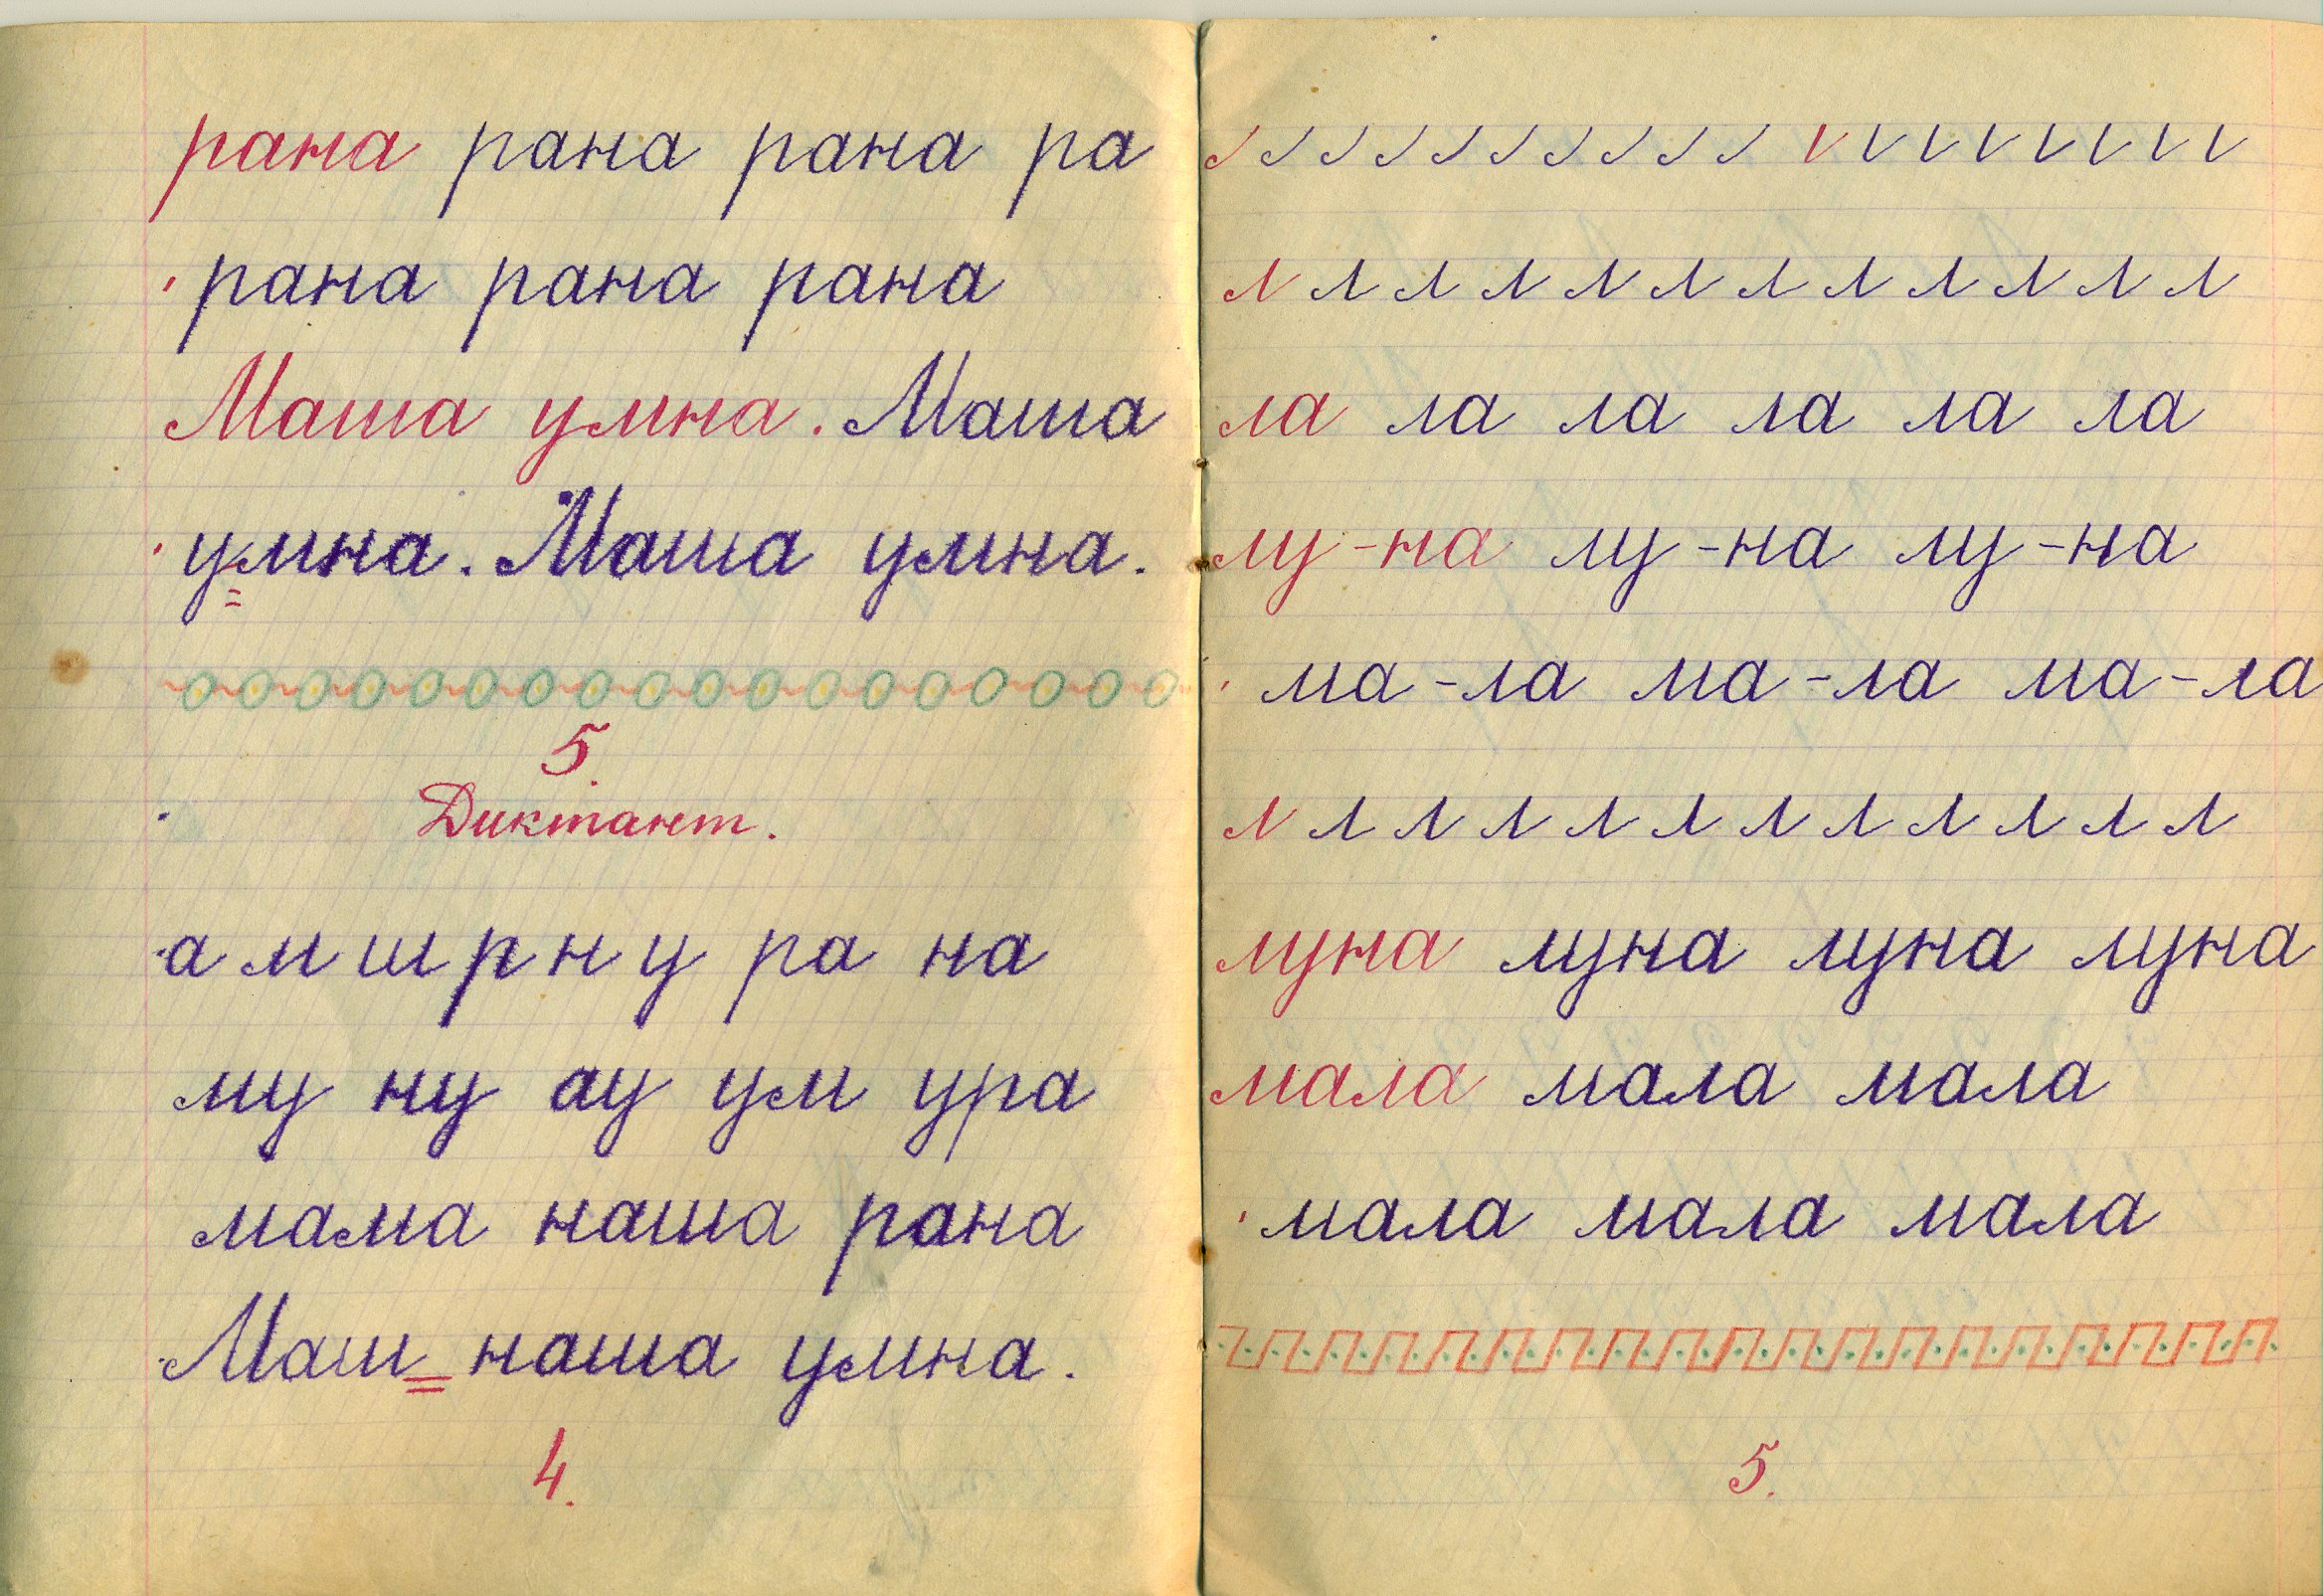 рана рана рана ра
рана рана рана
Маша умна. Маша
умна. Маша умна.
5.
Диктант.
а м ш р н у ра на
му ну ау ум ура
мама наша рана
Маш наша умна.
4.
л л л л л л л л л л л л
ла ла ла ла ла ла
лу-на лу-на лу-на
ма-ла ма-ла ма-ла
л л л л л л л л л л л л
луна луна луна луна
мала мала мала
мала мала мала
5.